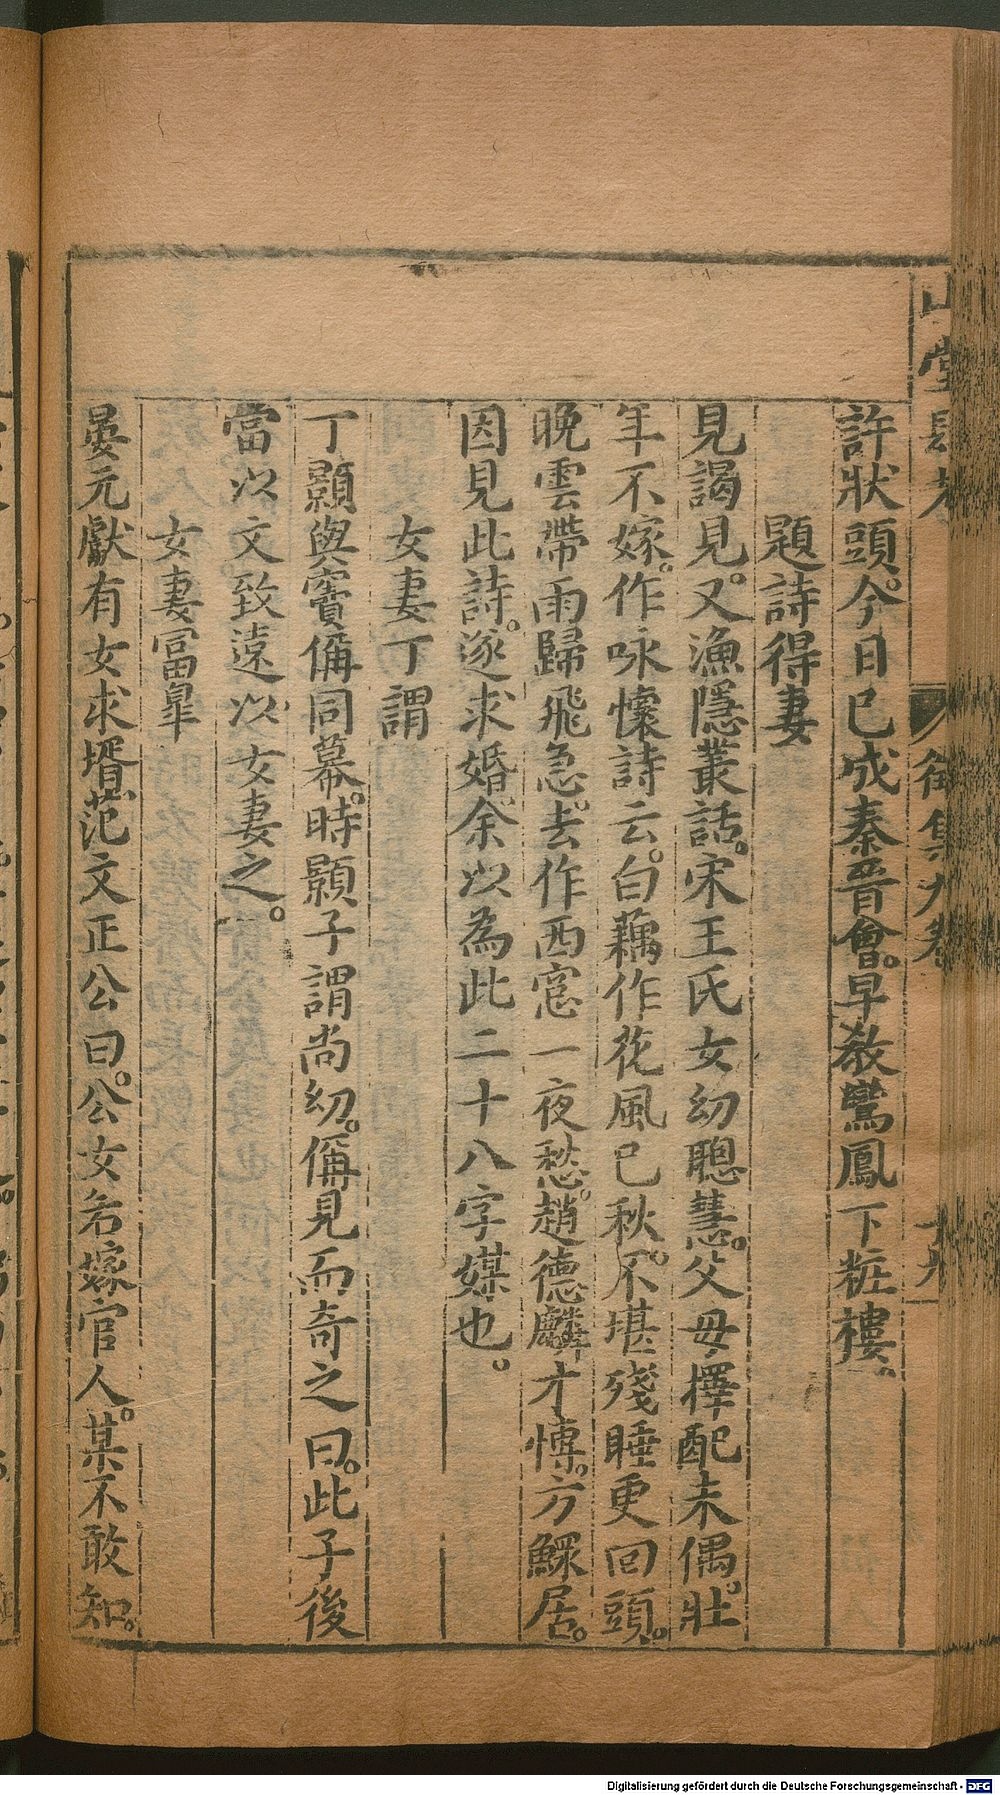 山堂肆考
徵集九卷
十九
許狀頭。今日已成秦晉會。早敎鸞鳳下粧樓。
題詩得妻
見謁見。又漁隱叢話。宋王氏女幼聰慧。父母擇配未偶。壯
年不嫁。作咏懷詩云。白藕作花風已秋。不堪殘睡更回頭。
晚雲帶雨歸飛急。去作西窓一夜愁。趙德麟才慱。方鰥居。
因見此詩。遂求婚。余以為此二十八字媒也。
女妻丁謂
丁顥與竇偁同幕。時顥子謂尚幼。偁見而奇之曰。此子後
當以文致遠以女妻之。
女妻冨臯
晏元獻有女求壻。范文正公曰。公女若嫁官人。某不敢知。
Digitalisierung gefördert durch die Deutsche Forschungsgemeinschaft - DFG